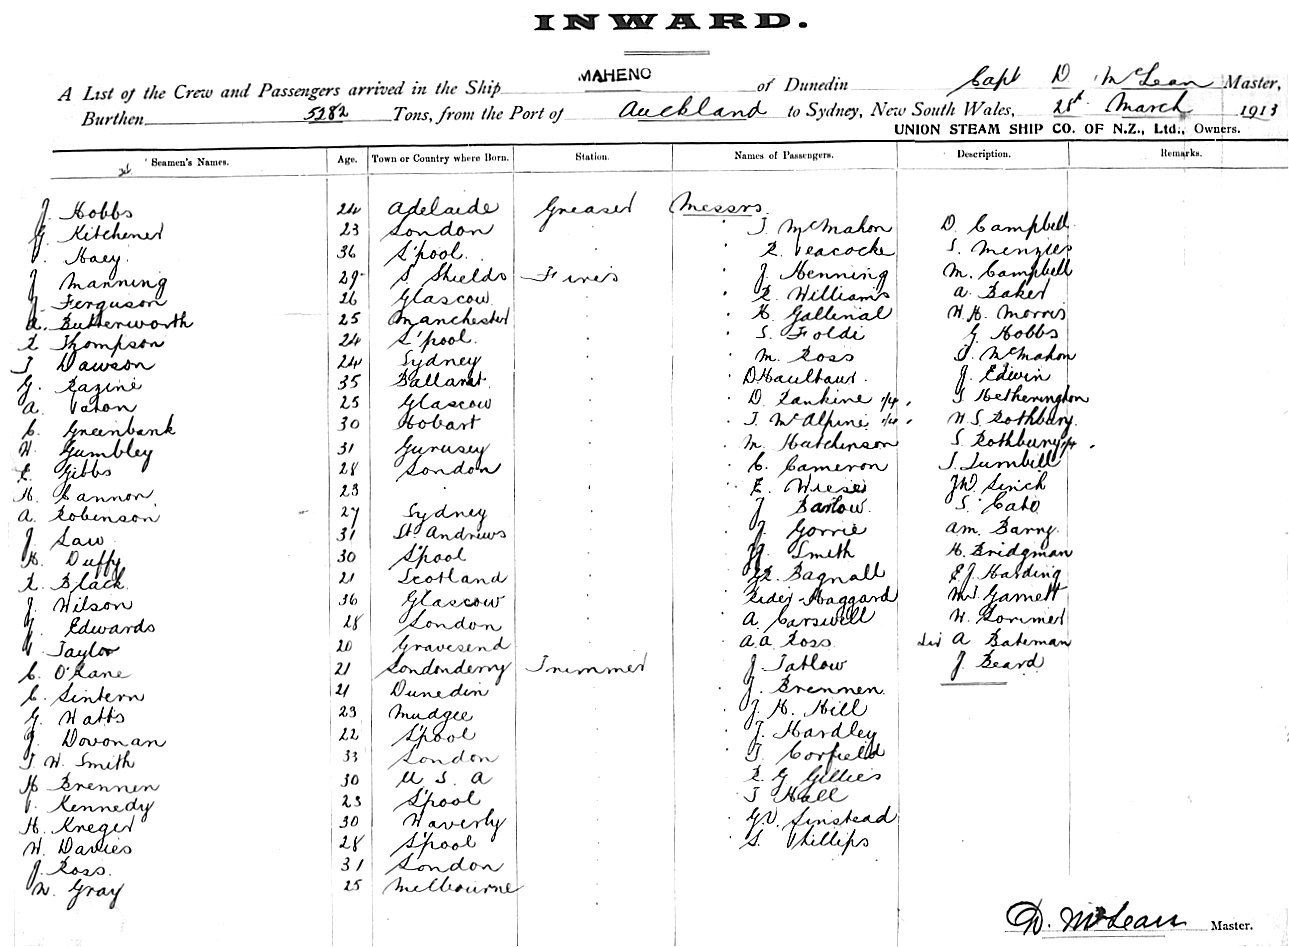 INWARD.
A List of the Crew and Passengers arrived in the Ship MAHENO of Dunedin Capt D McLean Master,
Burthen 5282 Tons, from the Port of Auckland to Sydney, New South Wales, 28th March 1913
UNION STEAM SHIP CO. OF N.Z., Ltd., Owners.
Seamen's Names. Age. Town or Country where Born. Station. Names of Passengers. Description. Remarks.
J. Hobbs 24 Adelaide Greaser Messrs
G. Kitchener 23 London " J McMahon D. Campbell
Haey 36 L'pool " R. Peacocke S. Menzies
J Manning 29 S. Shields Fires " J Henning M. Campbell
J. Ferguson 26 Glascow " R. Williams A. Baker
A. Butterworth 25 Manchester " H. Gallinal W.H. Morris
R Thompson 24 L'pool " S. Foldi G Hobbs
J Dawson 24 Sydney " M. Ross J. McMahon
G. Razine 35 Ballarat " D Haulhaur J. Edwin
A. Paton 25 Glascow " D. Rankine J Hetherington
C. Greenbank 30 Hobart " J. McAlpine W S Rothbury
W. Gumbley 31 Gurnsey " M. Hutchinson S Rothbury
E. Gibbs 28 London " C. Cameron J. Turnbull
H. Cannon 23 " E. Wiese J.W. Linch
A. Robinson 27 Sydney J Barlow S. Cato
J Law 31 St Andrews J Gorrie Am. Barry
H. Duffy 30 L'pool Smith H. Bridgman
R. Black 21 Scotland Bagnall E J Harding
J. Wilson 36 Glascow Rider Haggard Garnett
J. Edwards 28 London A. Carswell W. Lorimer
Taylor 20 Gravesend A.A. Ross Sir A Bateman
C. O'Kane 21 Londonderry Trimmer J Tatlow J. Beard
C. Lintern 21 Dunedin J. Brennen
G. Watts 23 Mudgee J. H. Hill
J. Dovonan 22 L'pool J. Hardley
J W. Smith 33 London J. Corfield
H Brennen 30 U S A R G Gillies
P. Kennedy 23 L'pool J Hall
H. Kreger 30 Waverly G.V. Linstead
W. Davies 28 L'pool S. Phillips
J. Ross 31 London
W. Gray 25 Melbourne
D. McLean Master.